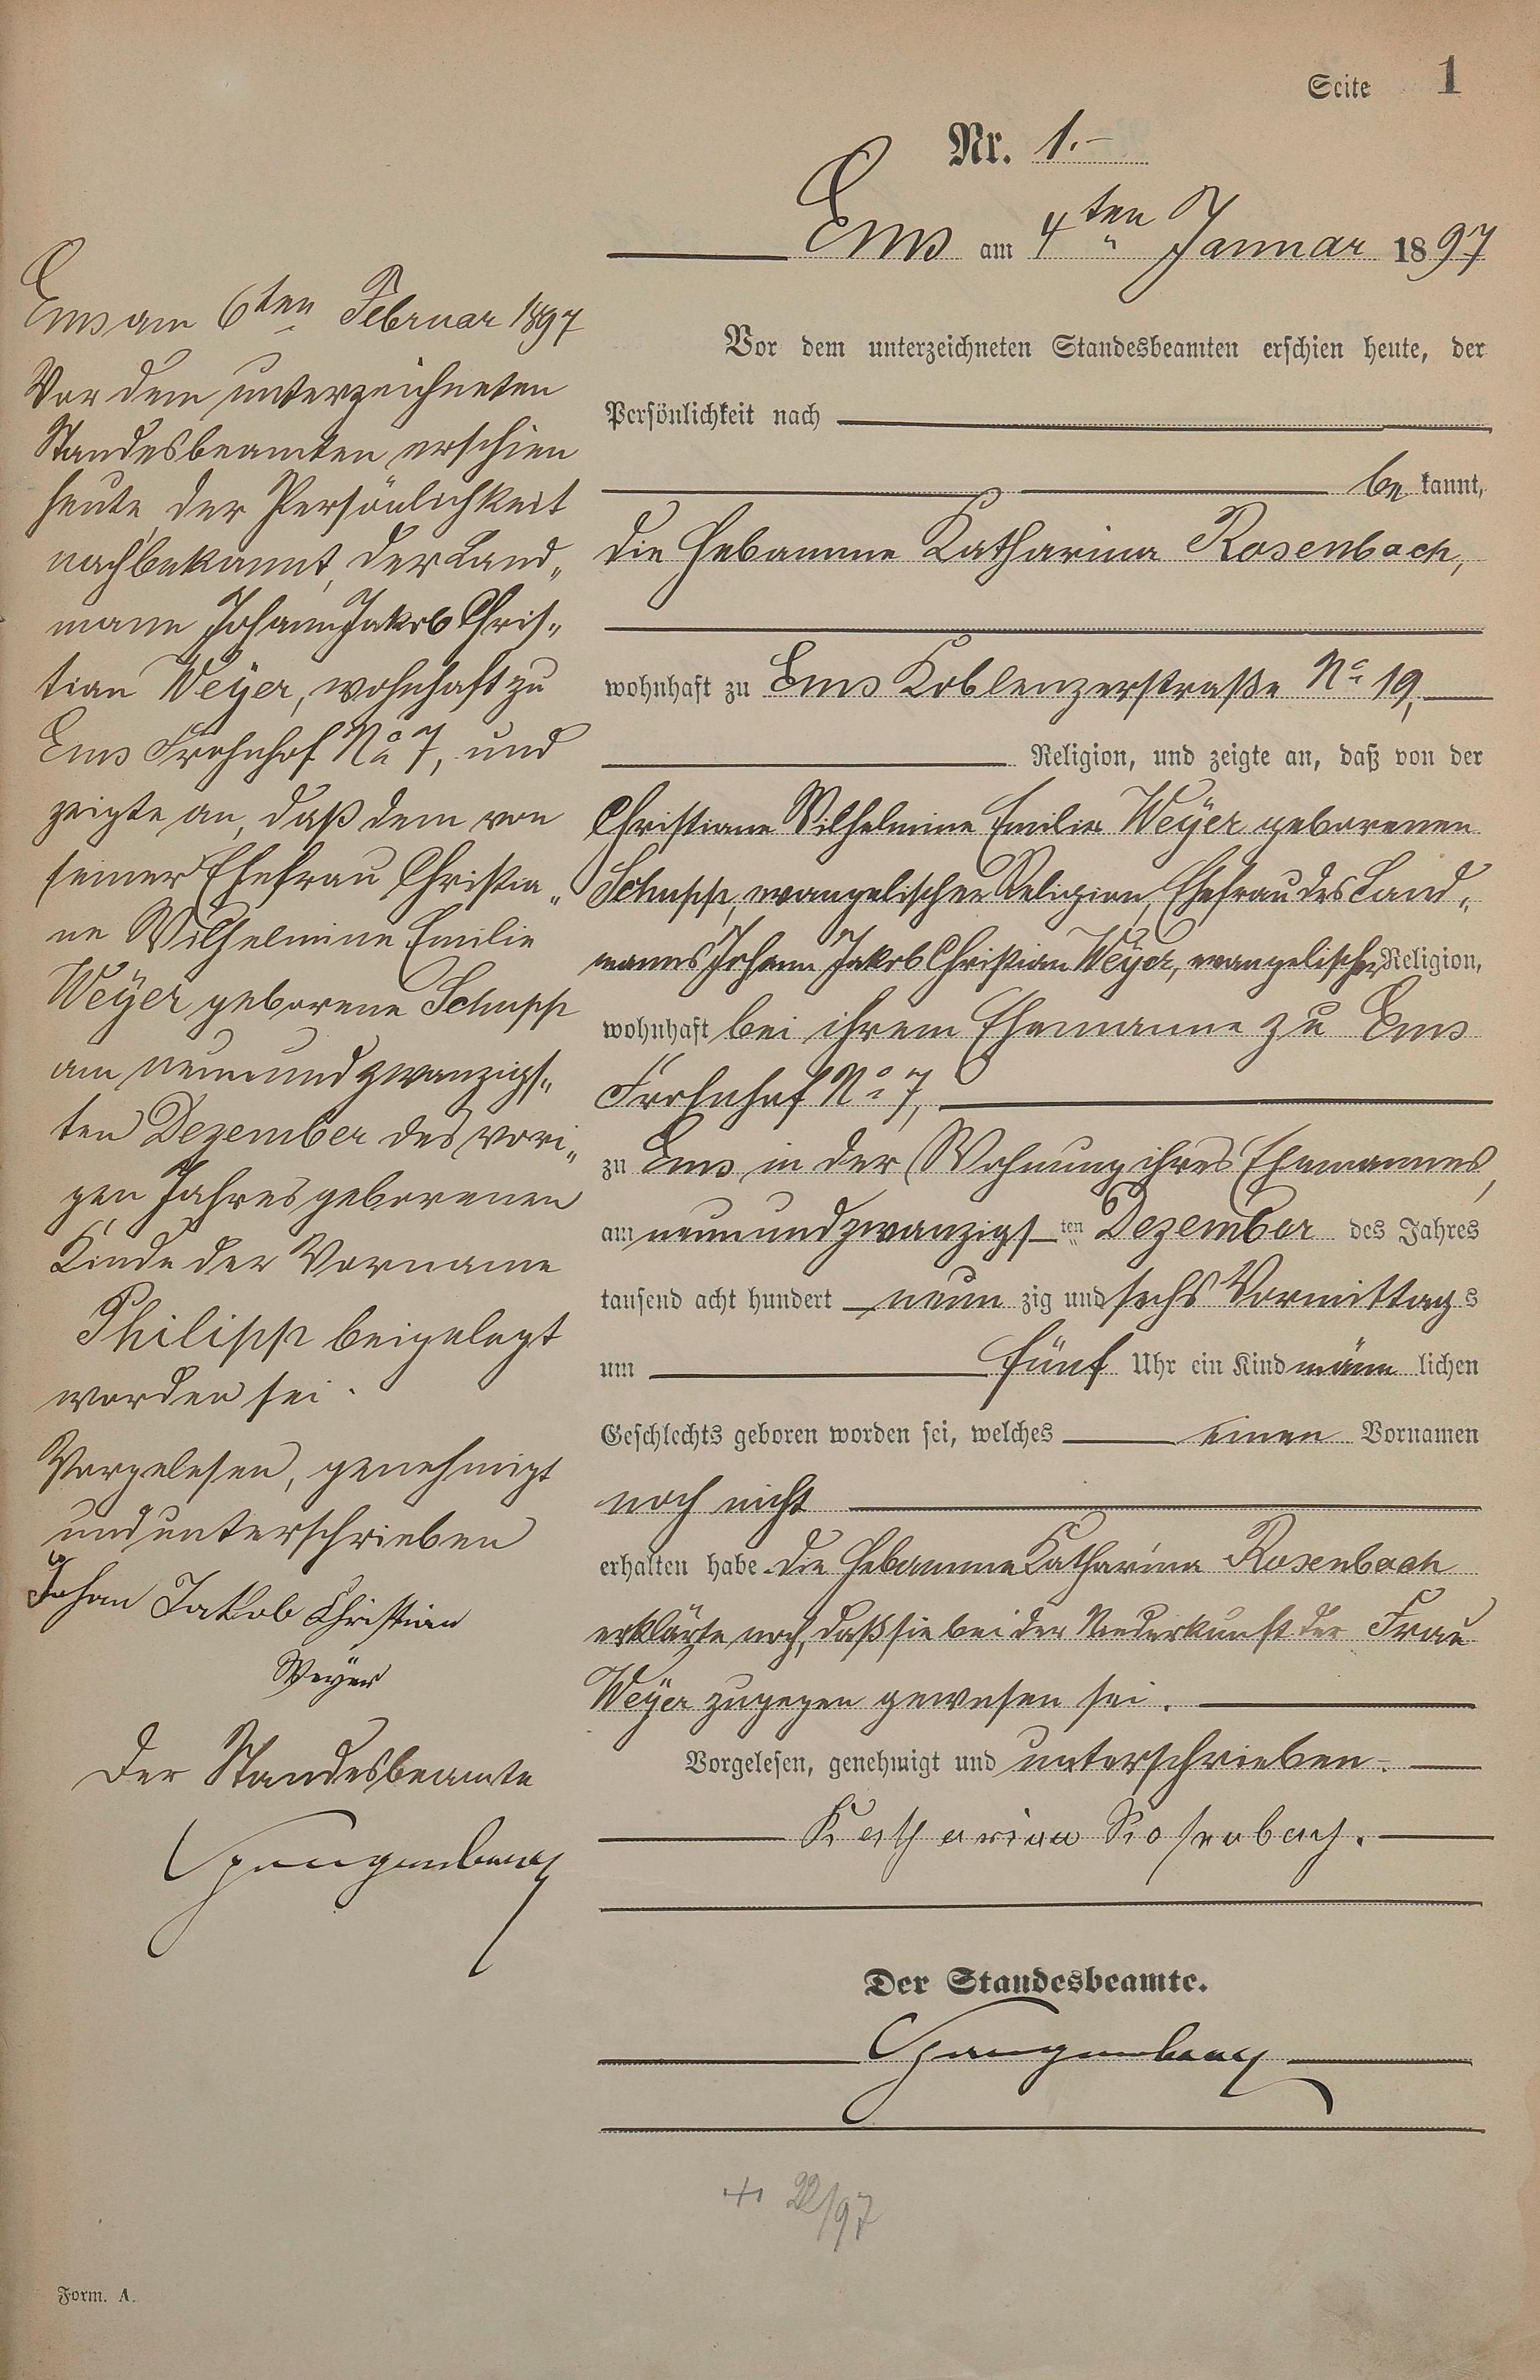 Seite 1
Nr. 1.-
Ems am 4ten Januar 1897
Vor dem unterzeichneten Standesbeamten erschien heute, der
Persönlichkeit nach
be kannt,
die Hebamme Katharina Rosenbach,
wohnhaft zu Ems Koblenzerstraße No 19,
Religion, und zeigte an, daß von der
Christiane Wilhelmine Emilie Weÿer geborenen
Schupp, evangelischer Religion, Ehefrau des Land„
manns Johann Jakob Christian Weÿer, evangelischer Religion,
wohnhaft bei ihrem Ehemanne zu Ems
Frohnhof No 7,
zu Ems in der Wohnung ihres Ehemannes,
am neunundzwanzigs ten Dezember des Jahres
tausend acht hundert neun zig und sechs Vormittags
um fünf Uhr ein Kind männ lichen
Geschlechts geboren worden sei, welches einen Vornamen
noch nicht
erhalten habe. Die Hebamme Katharina Rosenbach
erklärte noch, daß sie bei der Niederkunft der Frau
Weÿer zugegen gewesen sei.
Vorgelesen, genehmigt und unterschrieben.
Katharina Rosenbach.
Der Standesbeamte.
Spangenberg
+ 22/97
Ems am 6ten Februar 1897
Vor dem unterzeichneten
Standesbeamten erschien
heute, der Persönlichkeit
nach bekannt, der Land„
mann Johann Jakob Chris„
tian Weÿer, wohnhaft zu
Ems Frohnhof No 7, und
zeigte an, daß dem von
seiner Ehefrau Christia„
ne Wilhelmine Emilie
Weÿer geborene Schupp
am neunundzwanzigs„
ten Dezember des vori„
gen Jahres geborenen
Kinde der Vorname
Philipp beigelegt
worden sei.
Vorgelesen, genehmigt
und unterschrieben
Johan Jakob Christian
Weÿer
Der Standesbeamte
Spangenberg
Form. A.